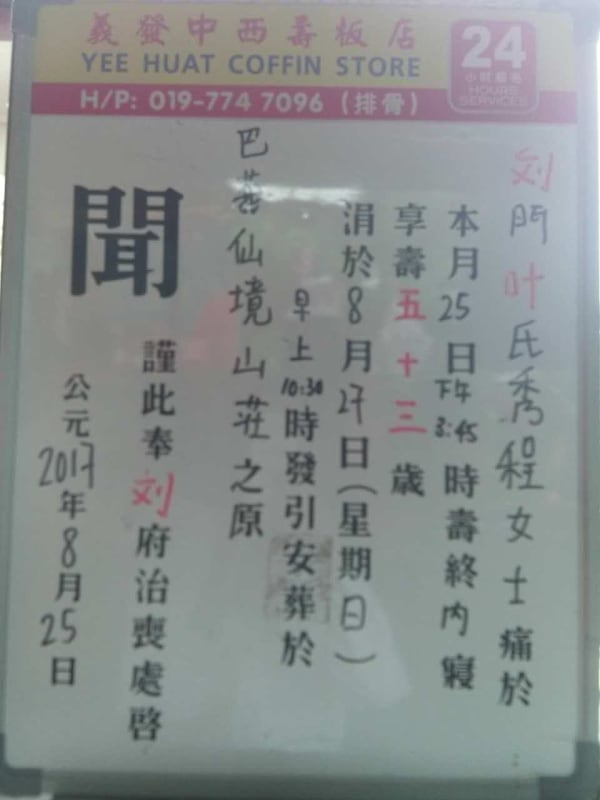 義發中西壽板店
YEE HUAT COFFIN STORE
24
小时服务
HOURS
SERVICES
H/P: 019-774 7096 (排骨)
刘門叶氏秀程女士痛於
本月25日下午3:45時壽終内寢
享壽五十三歲
涓於8月27日(星期日)
早上10:30時發引安葬於
巴莪仙境山莊之原
聞
謹此奉刘府治喪處啓
公元2017年8月25日